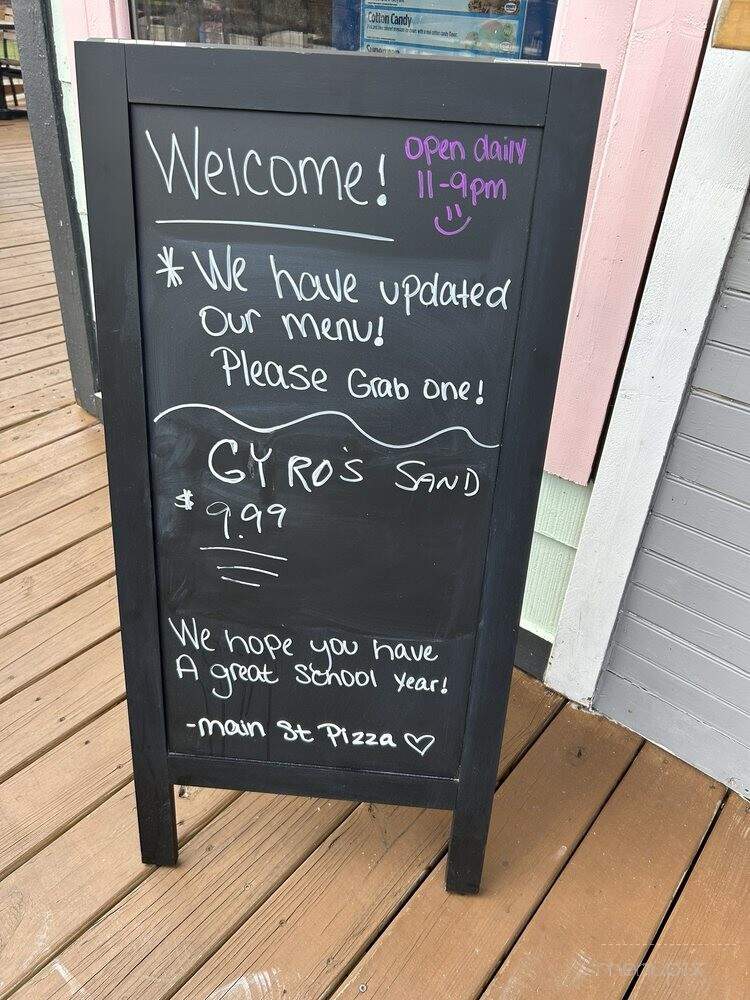 Cotton Candy
Welcome!
open daily
11-9pm
* We have updated
our menu!
Please Grab one!
GYRO'S SAND
$ 9.99
We hope you have
A great School year!
-main St Pizza ♡